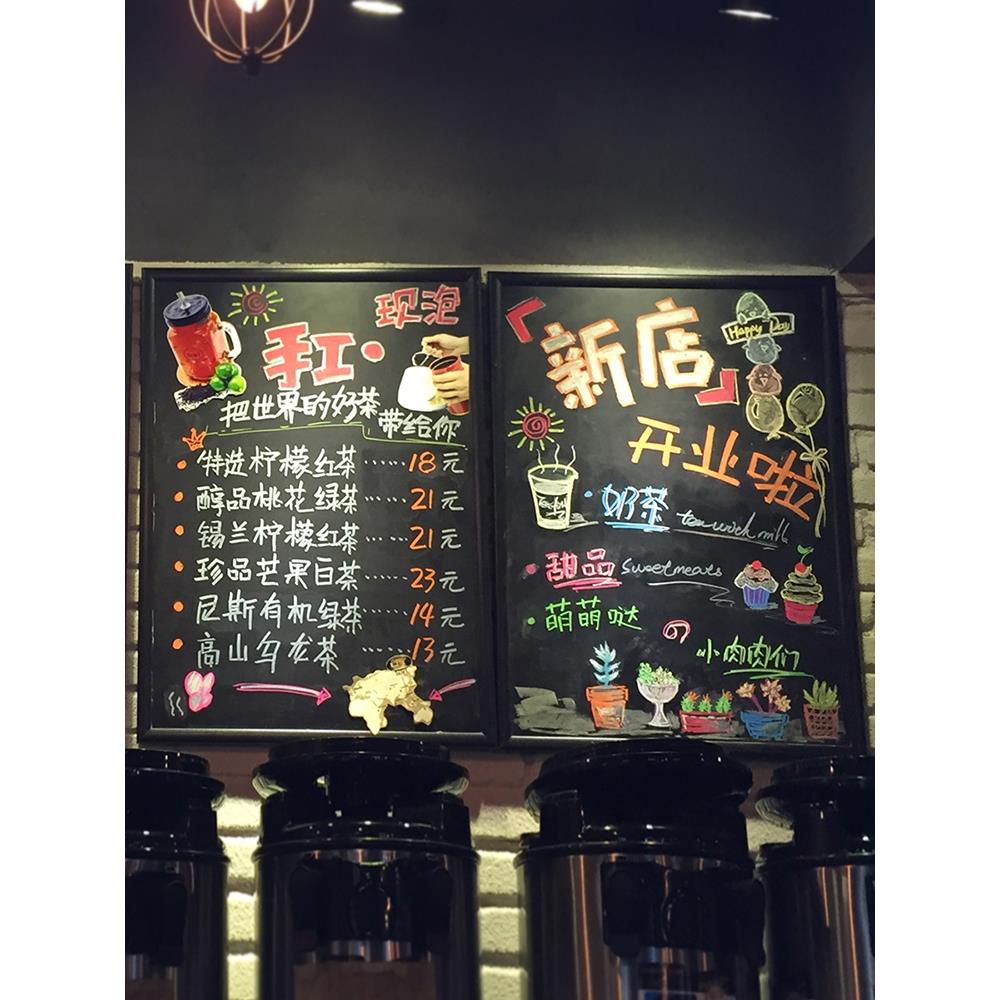 手工·现泡
把世界的好茶
带给你
特选柠檬红茶……18元
醇品桃花绿茶……21元
锡兰柠檬红茶……21元
珍品芒果白茶……23元
尼斯有机绿茶……14元
高山乌龙茶……13元
「新店」
Happy Day
开业啦
·奶茶
·甜品 sweetmeats
·萌萌哒
の
小肉肉们